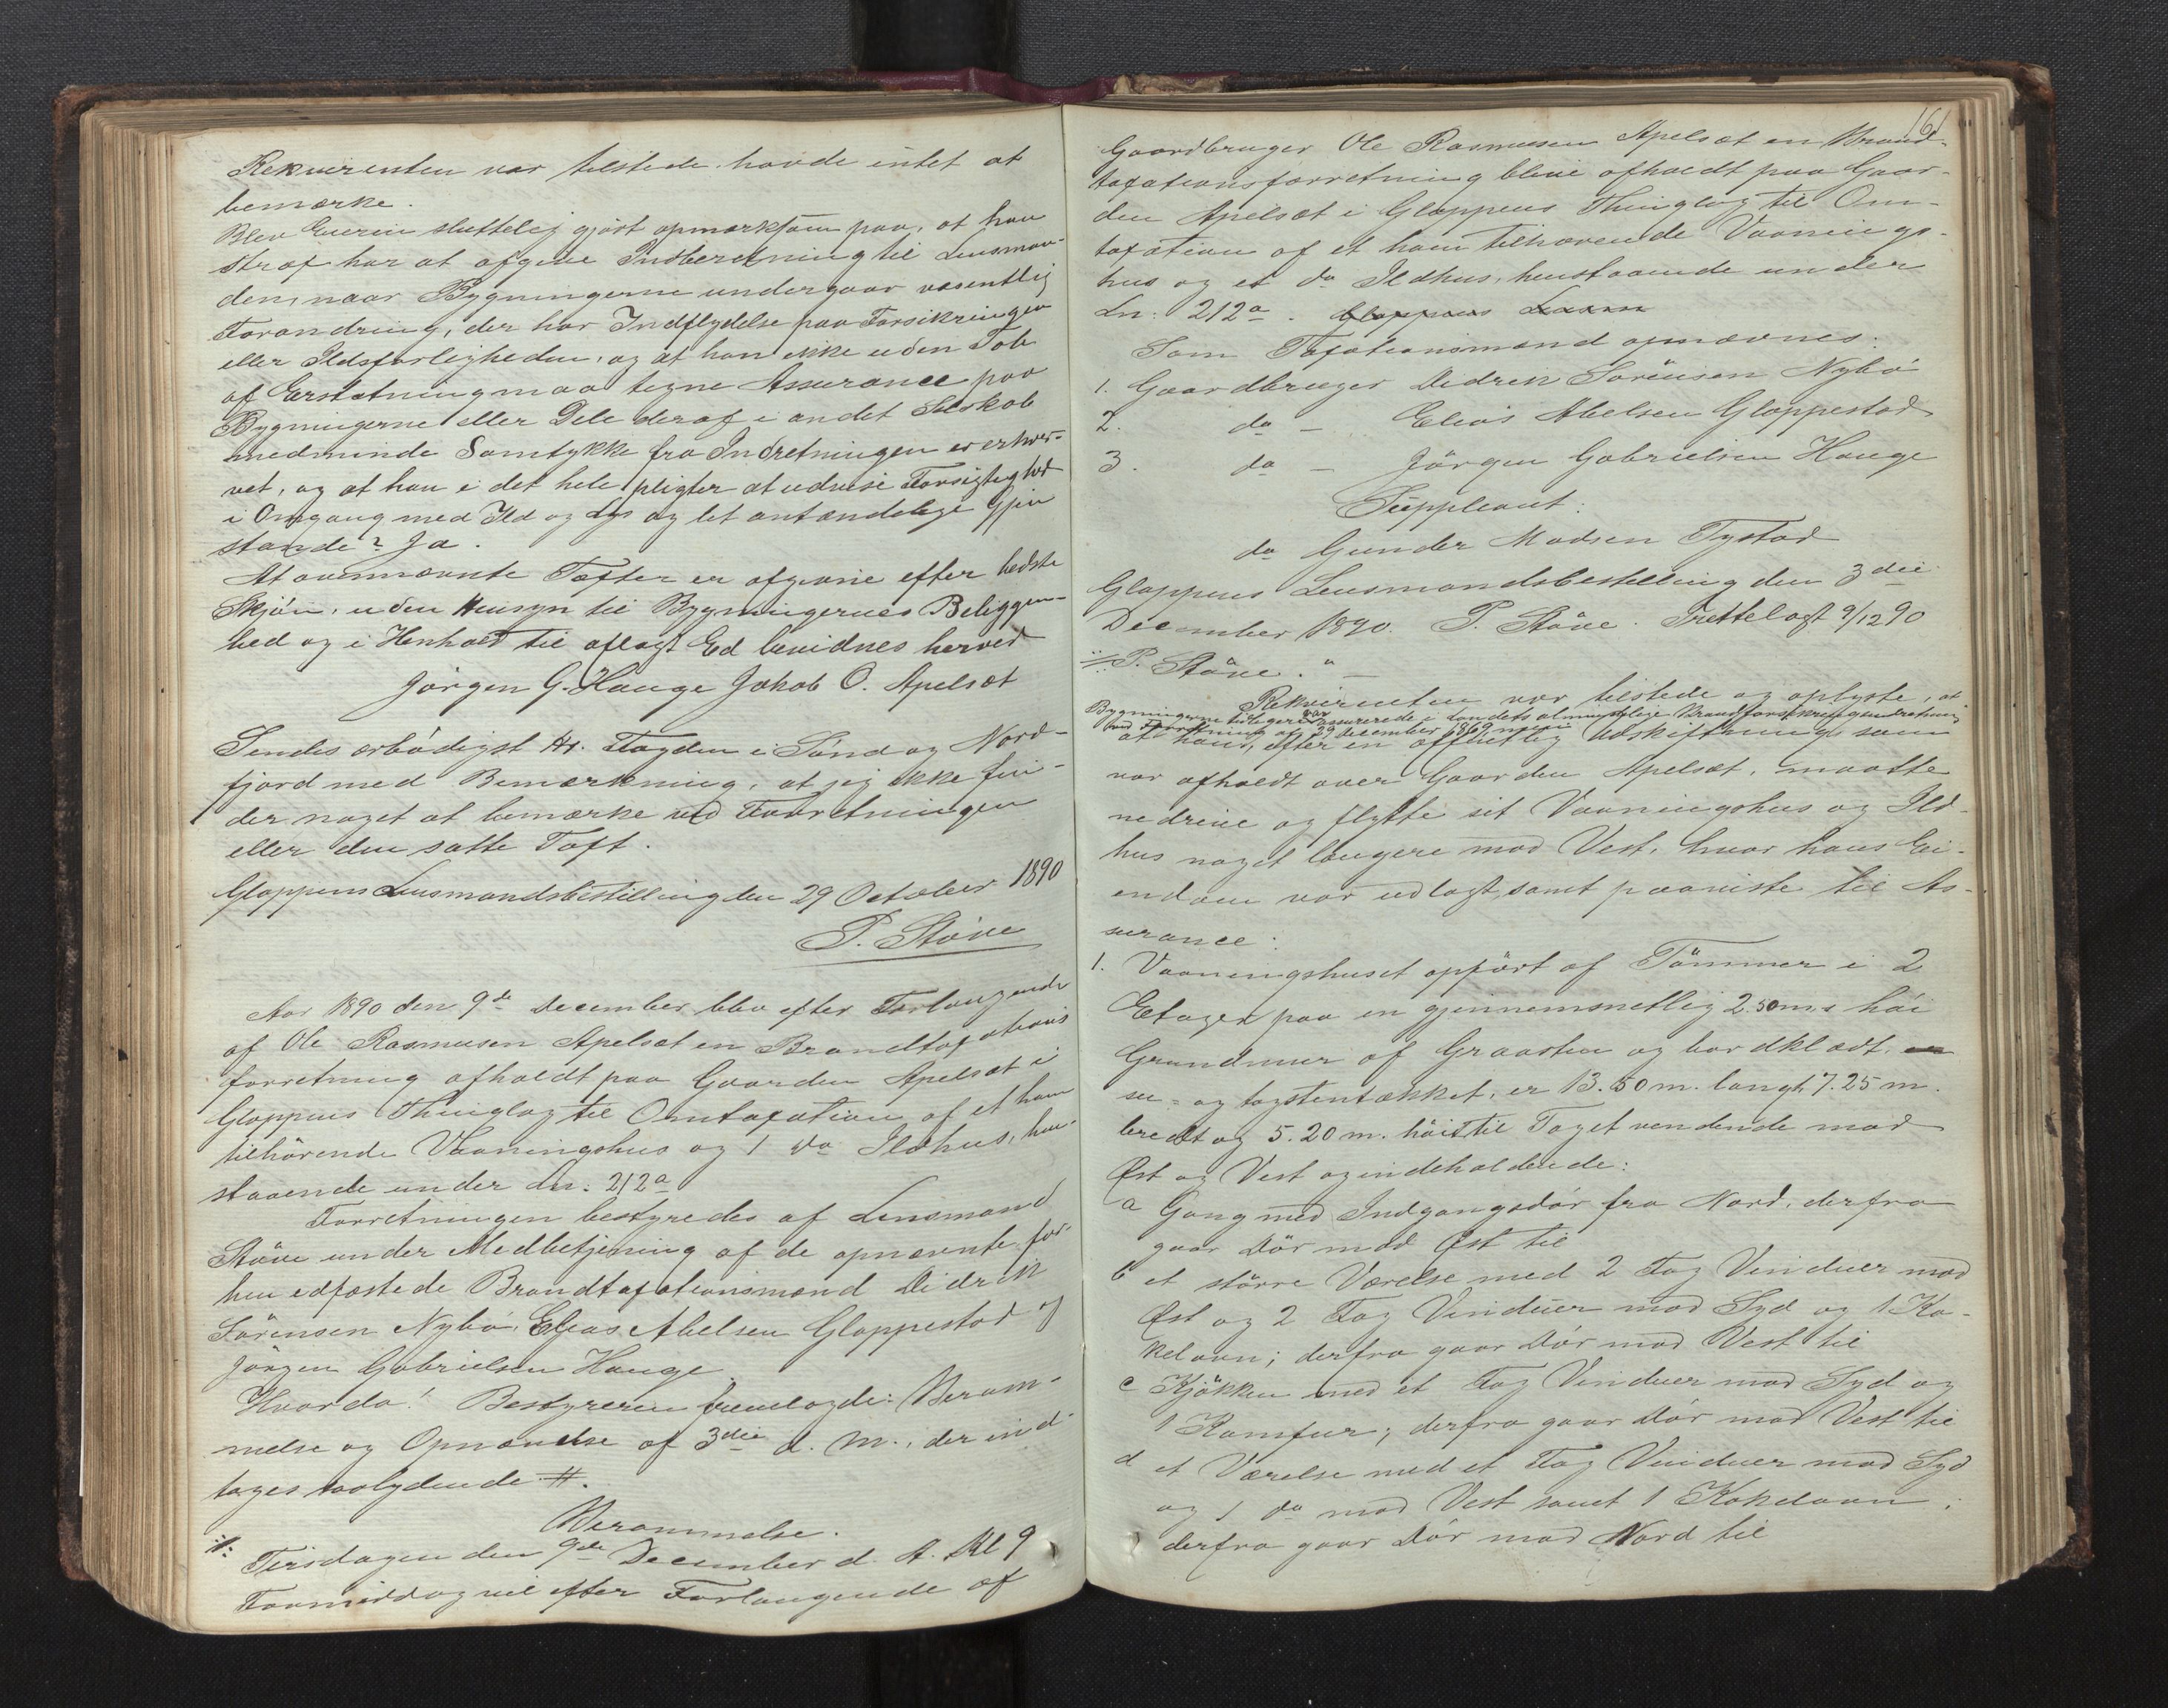 Rekvirenten var tilstede havde intet at
bemærke.
Blev Eieren sluttelig gjort opmærksom paa, at han
strax har at afgive Indberetning til Lensman-
den, naar Bygningerne undergaar væsentlig
Forandring, der har Indflydelse paa Forsikringen
eller Ildsfarligheden, og at han ikke uden Tab
af Erstatning maa tegne Assurance paa
Bygningerne eller Dele deraf i andet Selskab
medminde Samtykke fra Indretningen er erhver-
vet, og at han i det hele pligter at udvise Forsigtighed
i Omgang med Ild og Lys og let antændelige Gjen
stande? Ja.
At ovennævnte Taxter er afgivne efter bedste
Skjön, uden Hensyn til Bygningernes Beliggen-
hed og i Henhold til aflagt Ed bevidnes herved
Jörgen G. Hauge Jakob O. Apelset
Sendes ærbödigst Hr. Fogden i Sönd og Nord-
fjord med Bemærkning, at jeg ikke fin-
der noget at bemærke ved Forretningen
eller den satte Taxt.
Gloppens Lensmandsbestilling den 29 October 1890
P. Støve
Aar 1890 den 9de December blev efter Forlangende
af Ole Rasmusen Apelset en Brandtaxations
forretning afholdt paa Gaarden Apelset i
Gloppens Thinglag til Omtaxation af et ham
tilhörende Vaaningshus og 1 do Ildhus, hen-
staaende under Ln: 212a
Forretningen bestyredes af Lensmand
Støve under Medbetjening af de opnævnte for-
hen edfæstede Brandtaxationsmænd Didrik
Sörensen Nybö, Elias Abelsen Gloppestad og
Jörgen Gabrielsen Hauge.
Hvorda! Bestyreren fremlagde: Beram-
melse og Opnævnelse af 3die d. M., der ind-
tages saalydende #.
Berammelse.
Tirsdagen den 9de December d. A. Kl 9
Formiddag vil efter Forlangende af
161
Gaardbruger Ole Rasmusen Apelset en Brand-
taxationsforretning blive afholdt paa Gaar-
den Apelset i Gloppens Thinglag til Om-
taxation af et ham tilhørende Vaanings-
hus og et do Ildhus, henstaaende under
Ln: 212a. Gloppens
Som Taxationsmænd opnævnes:
1. Gaardbruger Didrik Sörensen Nybö
2. do - Elias Abelsen Gloppestad
3. do - Jörgen Gabrielsen Hauge
Suppleant:
do Gunder Madsen Tystad
Gloppens Lensmandsbestilling den 3die
December 1890. P. Støve. Fremlagt 9/12 90
P. Støve. "
Rekvirenten var tilstede og oplyste, at
Bygningerne tidligere var assurerede i Landets almindelige Brandforsikringsindretning
ved Forretning af 29 December 1869, men
at han, efter en offentlig Udskiftning som
var afholdt over Gaarden Apelset, maatte
nedrive og flytte sit Vaaningshus og Ild-
hus noget længere mod Vest, hvor hans Ei-
endom var udlagt, samt paaviste til As-
surance:
1. Vaaningshuset opfört af Tömmer i 2
Etager paa en gjennemsnetlig 2.50 m.s höi
Grundmur af Graasten og bordklædt,
ver- og tagstentækket, er 13.50 m. langt, 7.25 m.
bredt og 5.20 m. höit til Taget vendende mod
Øst og Vest og indeholdende:
a Gang med Indgangsdör fra Nord, derfra
gaar Dör mod Øst til
b et större Værelse med 2 Fag Vinduer mod
Øst og 2 Fag Vinduer mod Syd og 1 Ka-
kelovn; derfra gaar Dör mod Vest til
c Kjökken med et Fag Vinduer mod Syd og
1 Komfur; derfra gaar Dör mod Vest til
d et Værelse med et Fag Vinduer mod Syd
og 1 do mod Vest samt 1 Kakelovn;
derfra gaar Dör mod Nord til